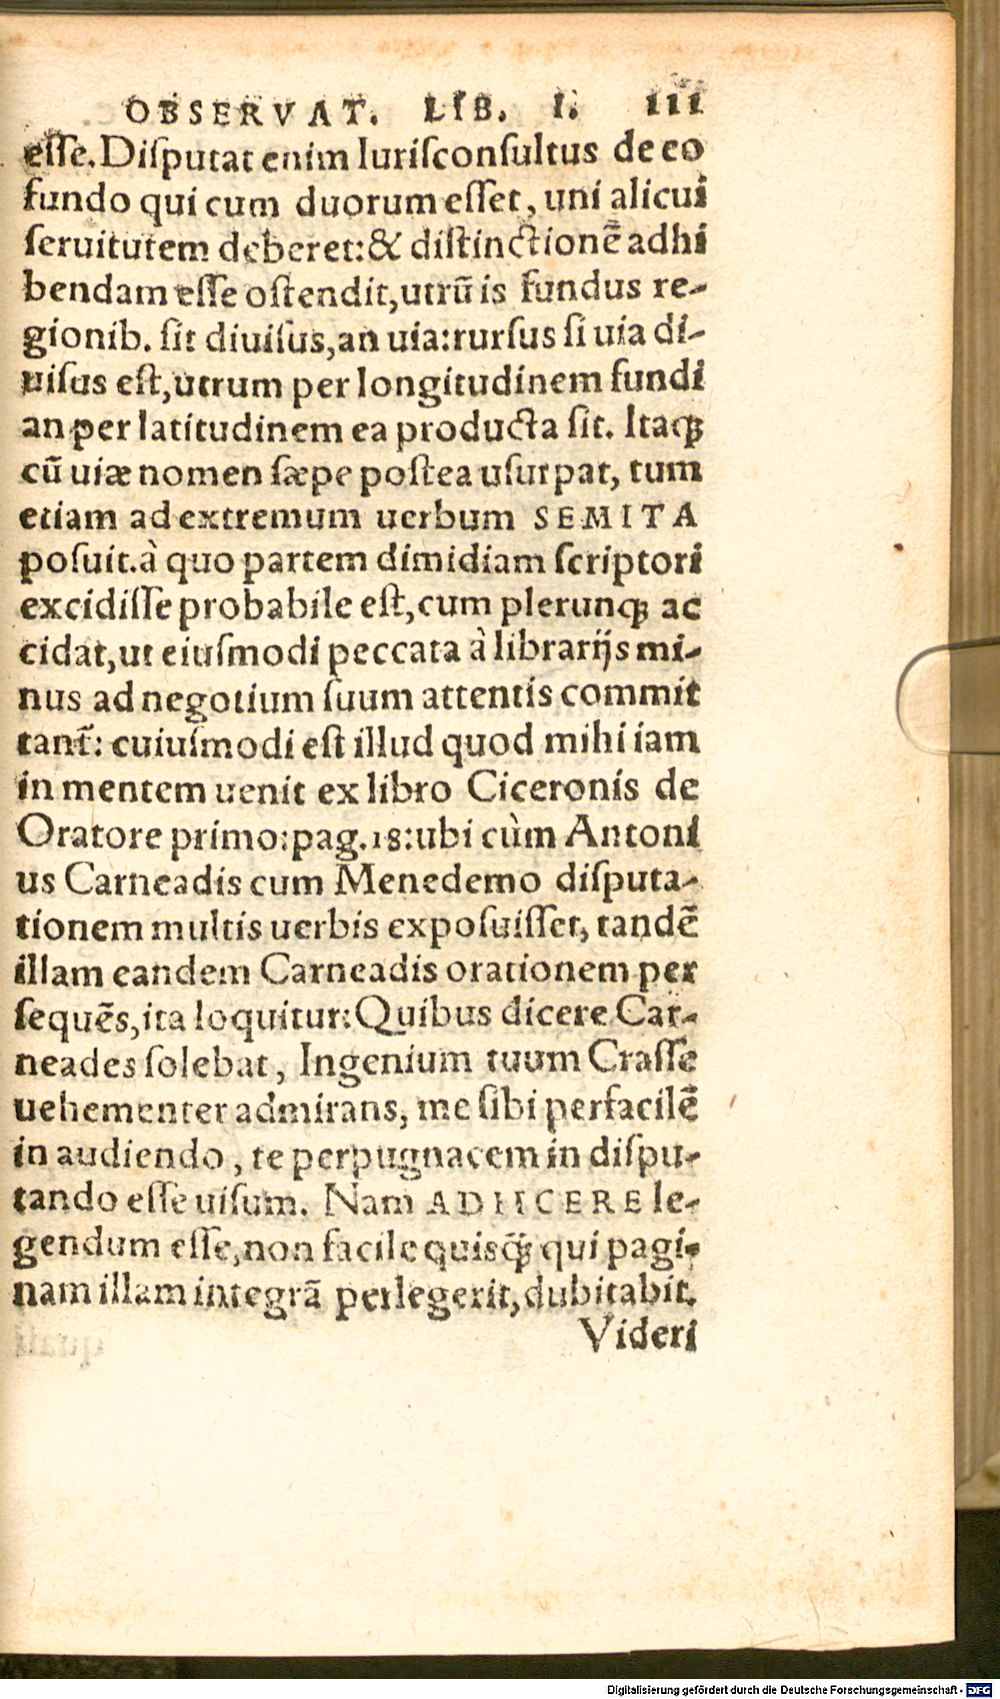 OBSERVAT. LIB. I. III
esse. Disputat enim Iurisconsultus de eo
fundo qui cum duorum esset, uni alicui
seruitutem deberet: & distinctionē adhi
bendam esse ostendit, utrū is fundus re-
gionib. sit diuisus, an uia: rursus si uia di-
uisus est, utrum per longitudinem fundi
an per latitudinem ea producta sit. Itaqꝫ
cū uiæ nomen sæpe postea usurpat, tum
etiam ad extremum uerbum SEMITA
posuit. à quo partem dimidiam scriptori
excidisse probabile est, cum plerunqꝫ ac
cidat, ut eiusmodi peccata à librarijs mi-
nus ad negotium suum attentis commit
tant̃: cuiusmodi est illud quod mihi iam
in mentem uenit ex libro Ciceronis de
Oratore primo: pag. 18: ubi cùm Antoni
us Carneadis cum Menedemo disputa-
tionem multis uerbis exposuisset, tandē
illam eandem Carneadis orationem per
sequēs, ita loquitur: Quibus dicere Car-
neades solebat, Ingenium tuum Crasse
uehementer admirans, me sibi perfacilē
in audiendo, te perpugnacem in dispu-
tando esse uisum. Nam ADIICERE le-
gendum esse, non facile quisq̃ꝫ qui pagi-
nam illam integrā perlegerit, dubitabit.
Videri
Digitalisierung gefördert durch die Deutsche Forschungsgemeinschaft - DFG